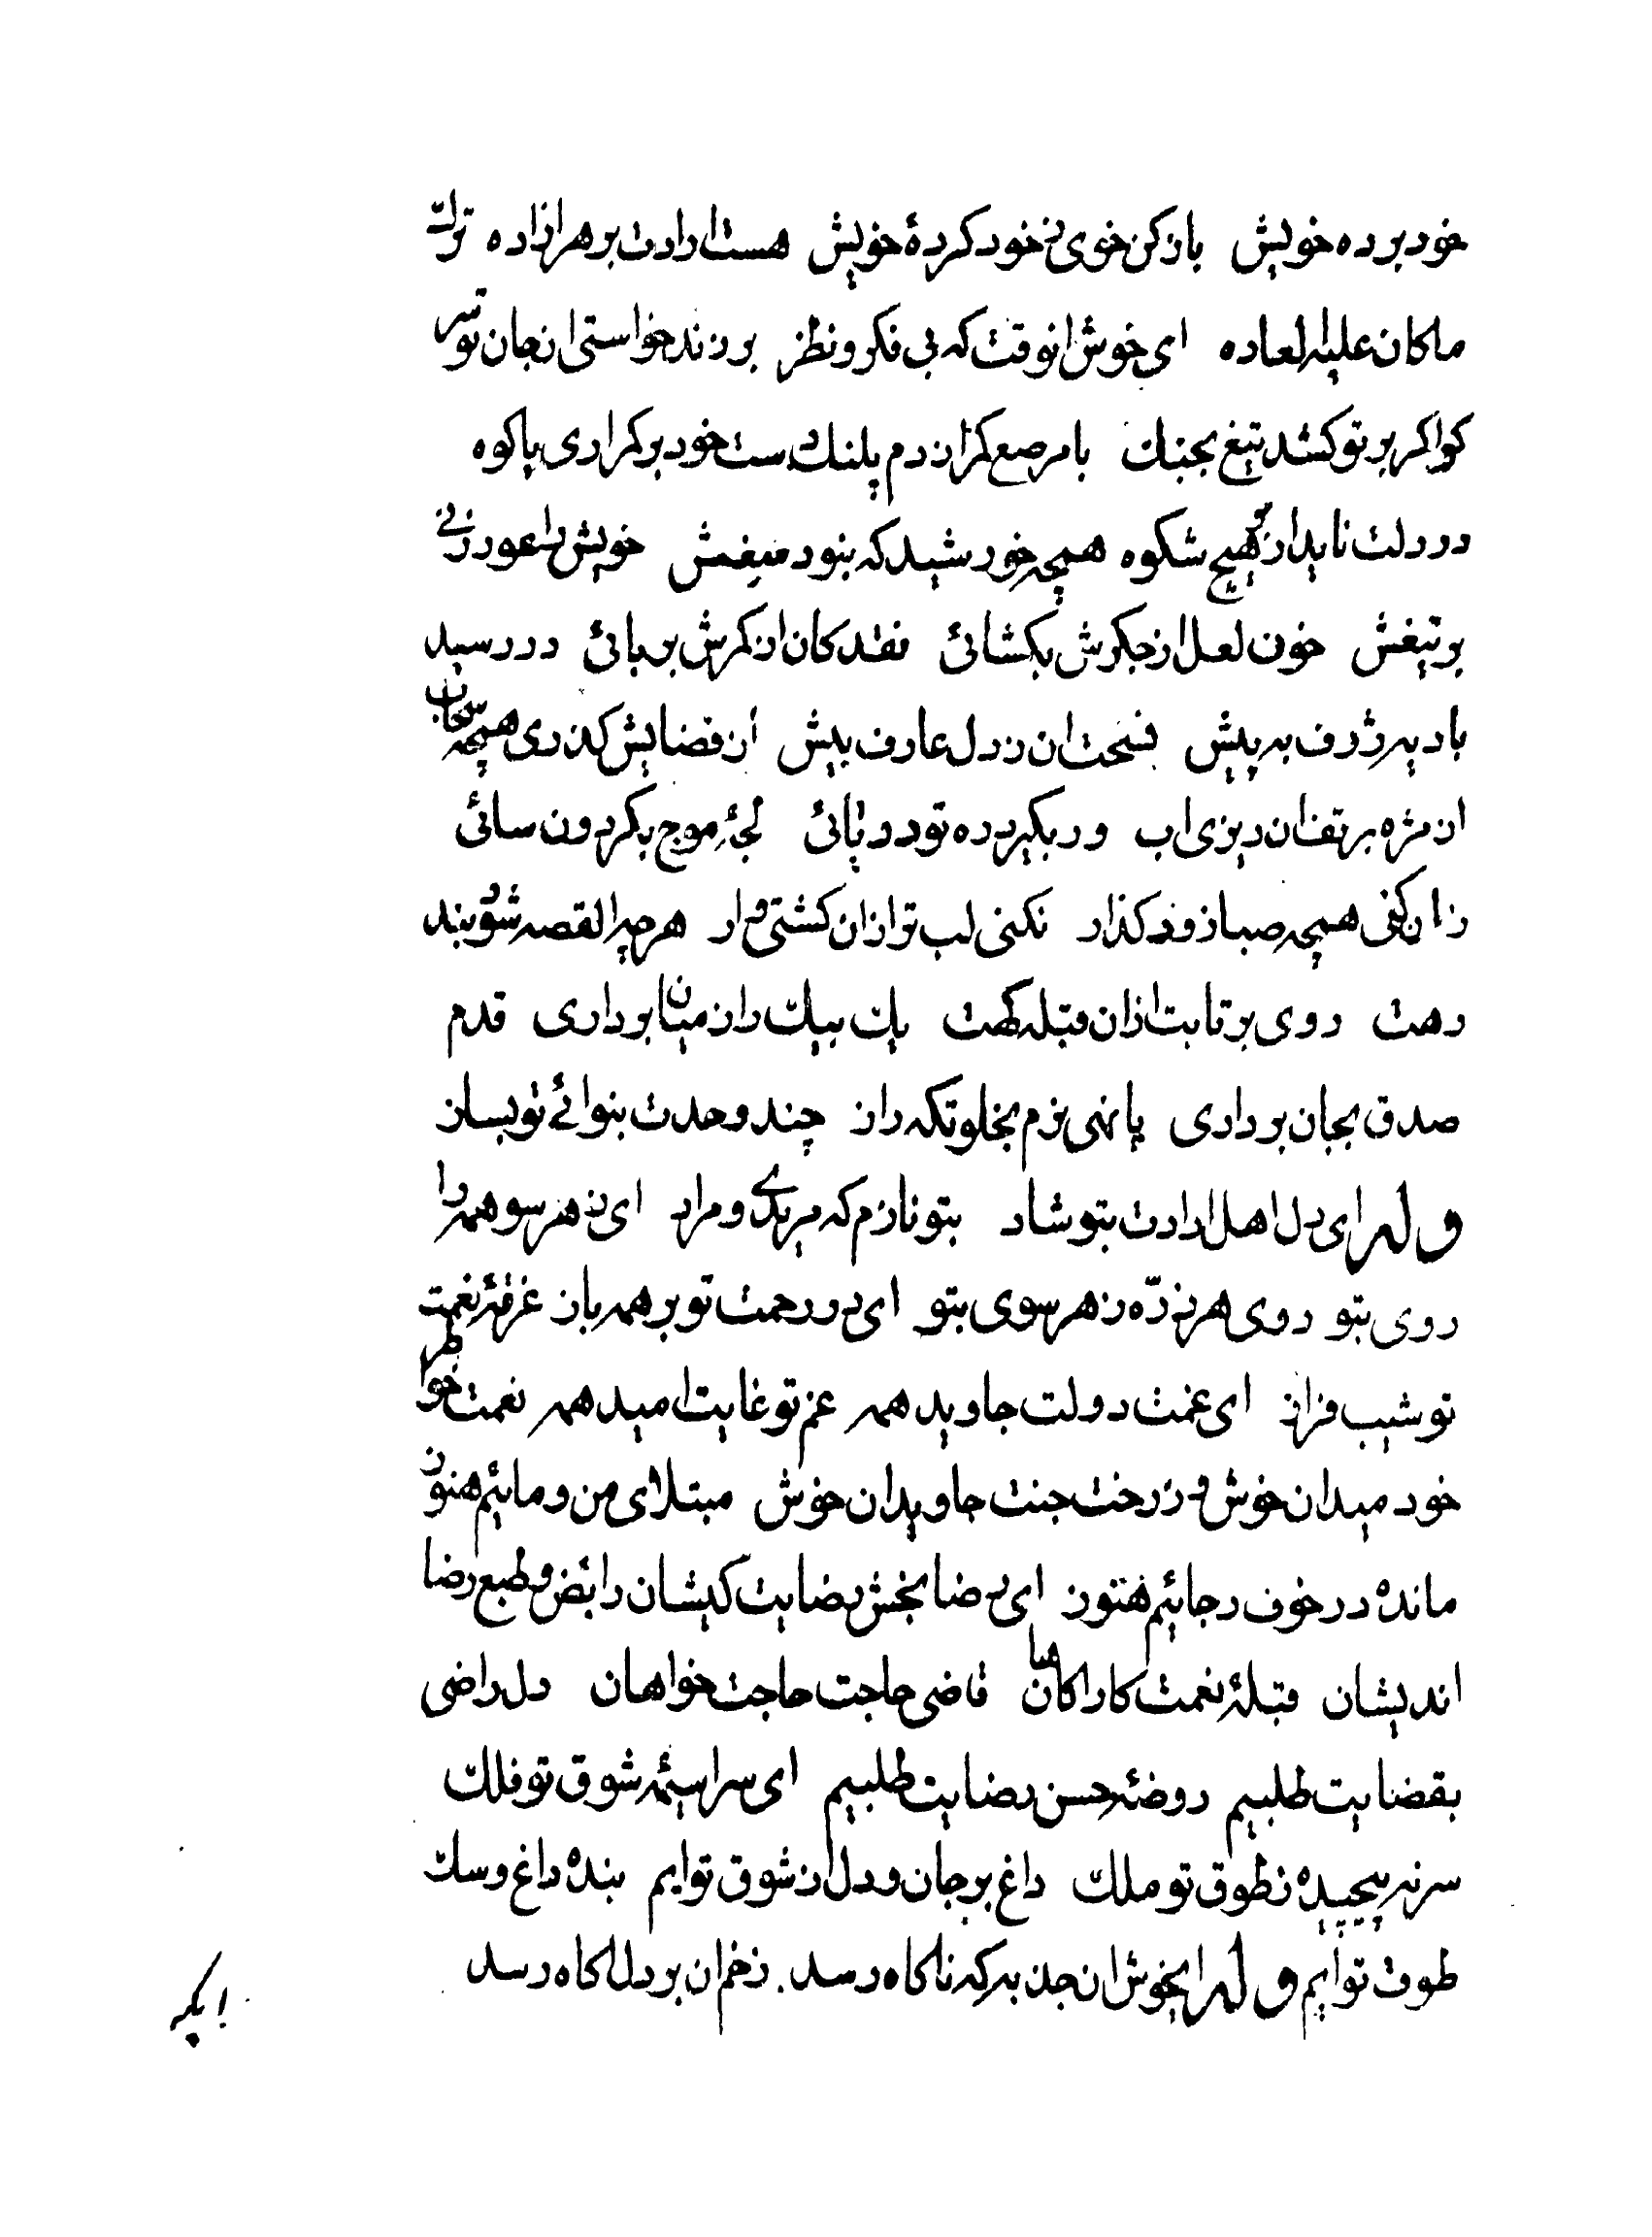 خود برده خویش بازکن خوی ز خود کردهٔ خویش هست ارادت بر هر ازاده ترک
ماکان علیه العاده ای خوش انوقت که بی فکر و نظر بر زند خواستی از جان تو سر
کو اگر بر تو کشد تیغ بجنک با مرصع کمر از دم پلنک دست خود بر کمر اری با کوه
در دلت ناید ازو هیچ شکوه همچه خورشید که بنود میغش خویش را عور زنی
بر تیغش خون لعل از جکرش بکشائی نقد کان از کمرش بربائی در رسید
بادیه ژرف به پیش فسحت ان ز دل عارف بیش از فضایش کذری همچه سحاب
از مژه بر تفتان ریزی اب ور بکیرد ره تو دریائی لجهٔ موج بکردون سائی
زان کنی همچه صبا زود کذار نکنی لب تر ازان کشتی وار هرچه القصه شود بند
رهت روی بر تابت ازان قبله کهت یک بیک را از میان برداری قدم
صدق بجان برداری پا نهی نرم بخلوتکه راز چند وحدت بنوائے تو بساز
وله ای دل اهل ارادت بتو شاد بتو نازم که مریدی و مراد ای ز هر سو همه را
روی بتو روی هر ذرّه ز هر سوی بتو ای در رحمت تو بر همه باز غرقهٔ نعمت
تو شیب فراز ای غمت دولت جاوید همه غم تو غایت امید همه نعمت خوا طر
خود میدان خوش و ز رخت جنت جاویدان خوش مبتلای من و مائیم هنوز
مانده در خوف رجائیم هنوز ای رضا بخش رضایت کیشان رایض و طبع رضا
اندیشان قبلهٔ نعمت کار اکاهان قاضی حاجت حاجت خواهان دل راضی
بقضایت طلبیم روضهٔ حسن رضایت طلبیم ای سراسیمهٔ شوق تو فلک
سر نه پیچیده ز طوق تو ملک داغ بر جان و دل از شوق توایم بنده داغ و سک
طوق توایم وله ایخوش ان جذبه که ناکاه رسد زخم ان بر دل اکاه رسد